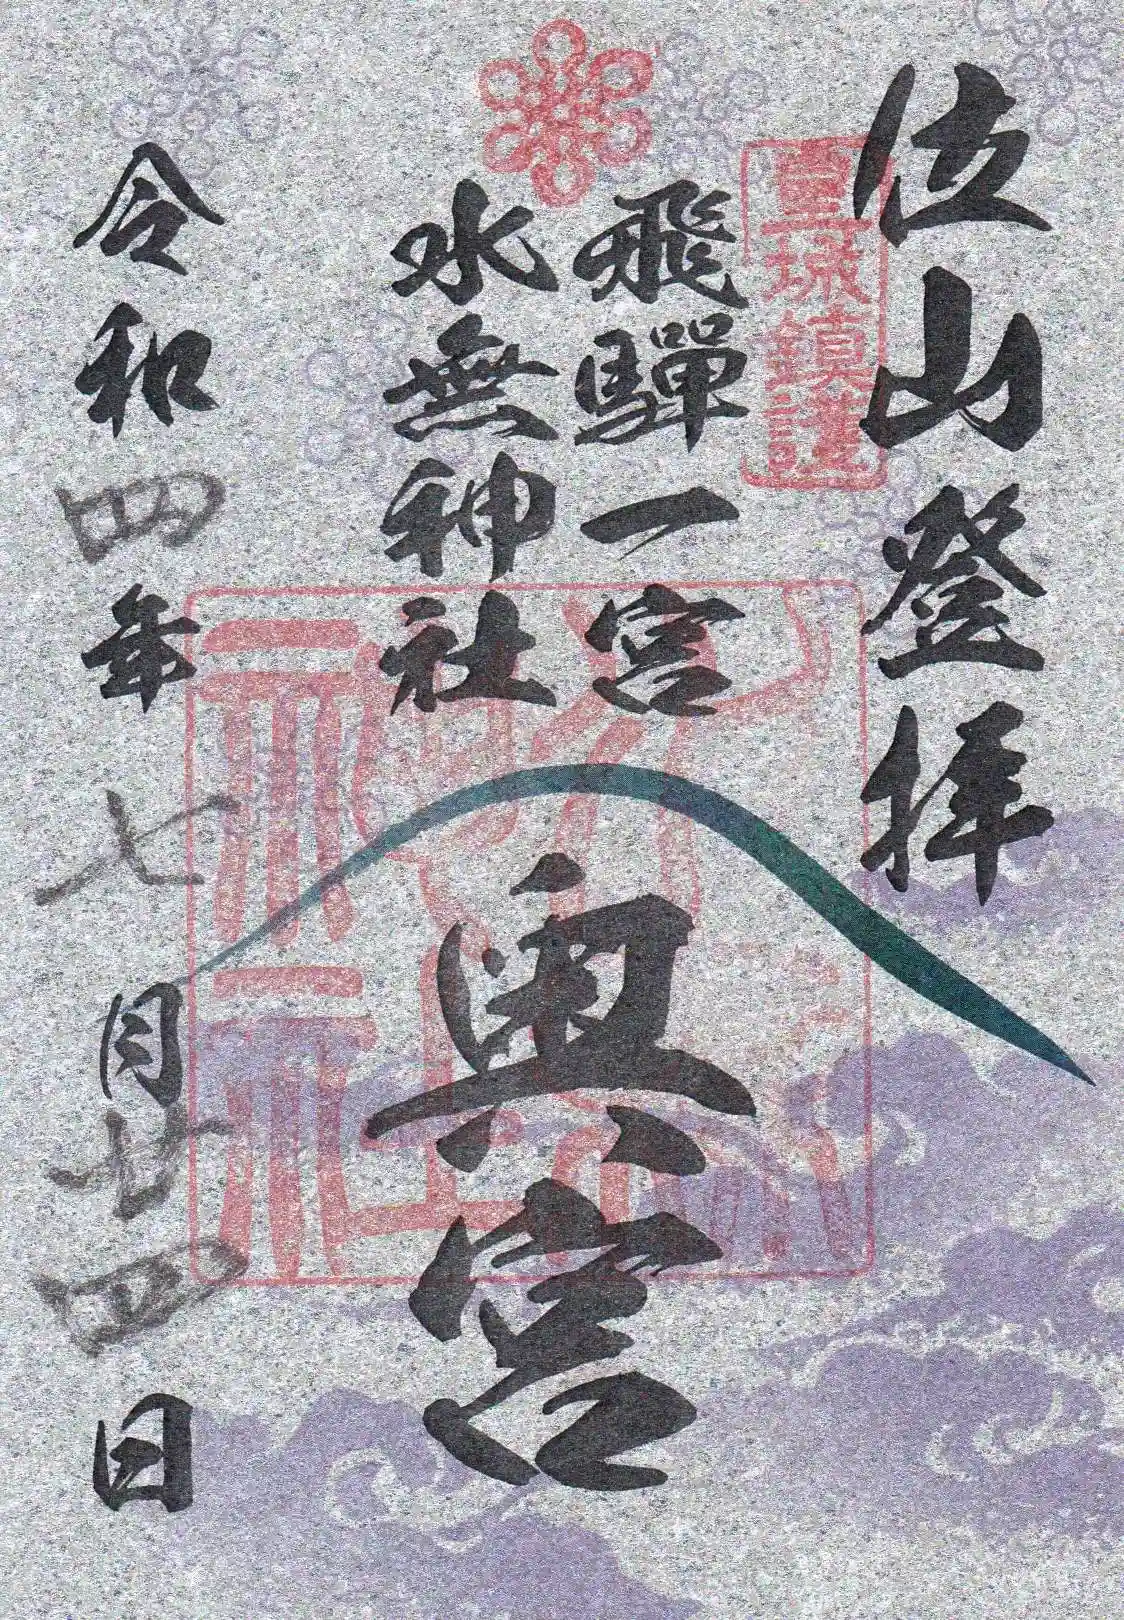 位山登拝
皇城鎮護
飛驒一宮
水無神社
奥宮
令和四年七月廿四日